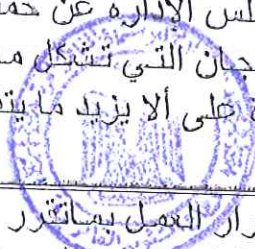 لس الإدارة عن حم
جان التي تشكل م
ة على ألا يزيد ما يتة
رار العمل بما تقرر